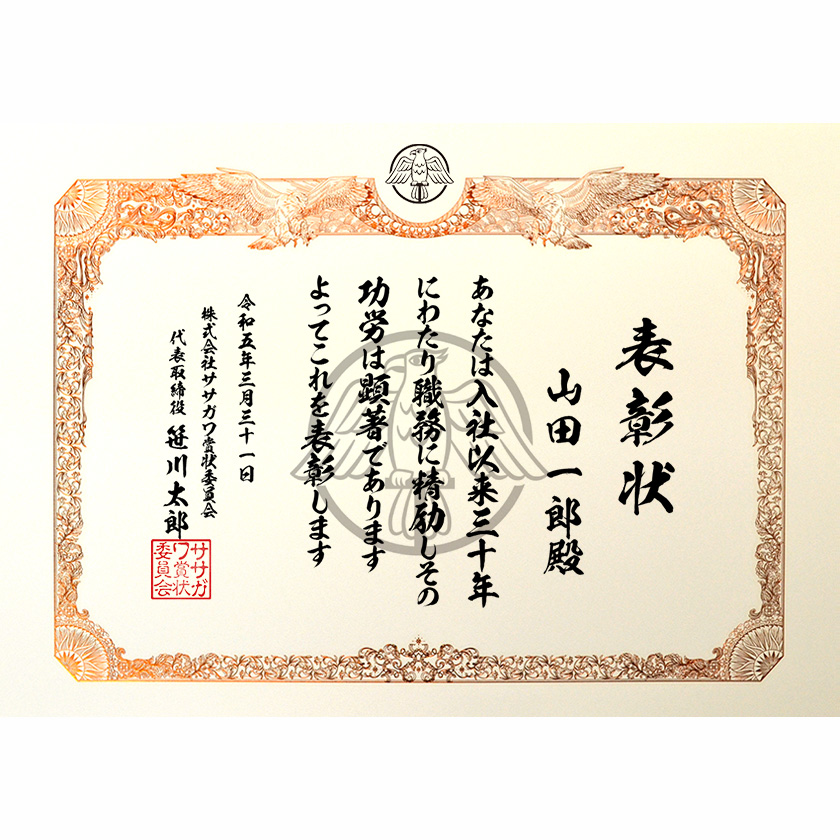 表彰状
山田一郎殿
あなたは入社以来三十年
にわたり職務に精励しその
功労は顕著であります
よってこれを表彰します
令和五年三月三十一日
株式会社ササガワ賞状委員会
代表取締役 笹川太郎
ササガ
ワ賞状
委員会